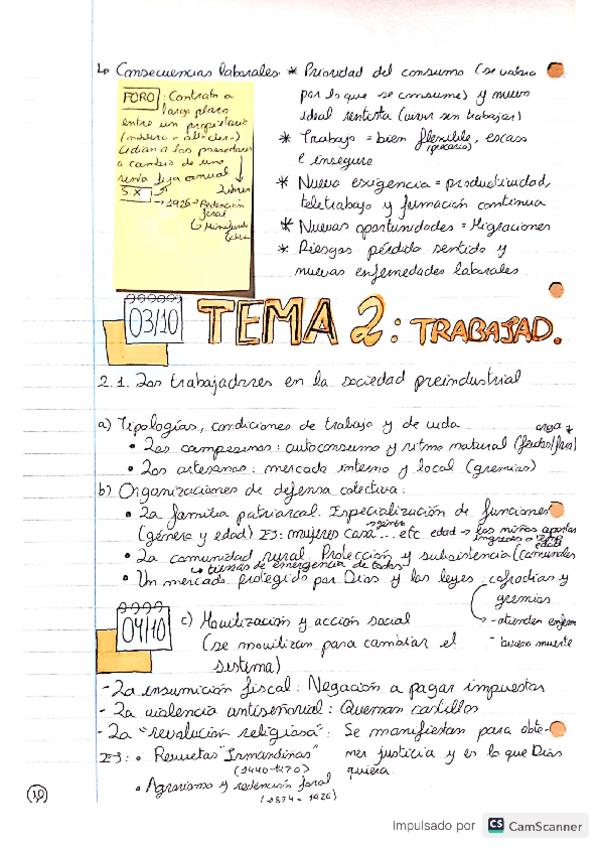 ↳ Consecuencias laborales * Prioridad del consumo (se valora
por lo que se consume) y nuevo
ideal rentista (vivir sin trabajar)
* Trabajo = bien flexible, escaso
(precario)
e inseguro
* Nueva exigencia = productividad,
teletrabajo y formación continua
* Nuevas oportunidades = Migraciones
* Riesgos pérdida sentido y
nuevas enfermedades laborales
FORO: Contrato a
largo plazo
entre un propietario
a cambio de una
renta fija anual
S.X
→ 1926 → Redención
foral
03/10
TEMA 2: TRABAJAD.
2.1. Los trabajadores en la sociedad preindustrial
a) Tipologías, condiciones de trabajo y de vida
• Los campesinos: autoconsumo y ritmo natural
• Los artesanos: mercado interno y local (gremios)
b) Organizaciones de defensa colectiva:
• La familia patriarcal. Especialización de funciones
(género y edad) EJ: mujeres casa ... etc edad → los niños aportan
• La comunidad rural. Protección y subsistencia (comunales
↳ tierras de emergencia de todos)
• Un mercado protegido por Dios y las leyes: cofradías y
gremios
- atienden enferm
- buena muerte
04/10
c) Movilización y acción social
(se movilizan para cambiar el
sistema)
- La insumisión fiscal: Negación a pagar impuestos
- La violencia antiseñorial: Queman castillos
- La "revolución religiosa": Se manifiestan para obte-
ner justicia y es lo que Dios
quiera.
EJ: • Revueltas "Irmandiñas"
(1440-1470)
• Agrarismo y redención foral
(1874 - 1926)
10
Impulsado por CS CamScanner